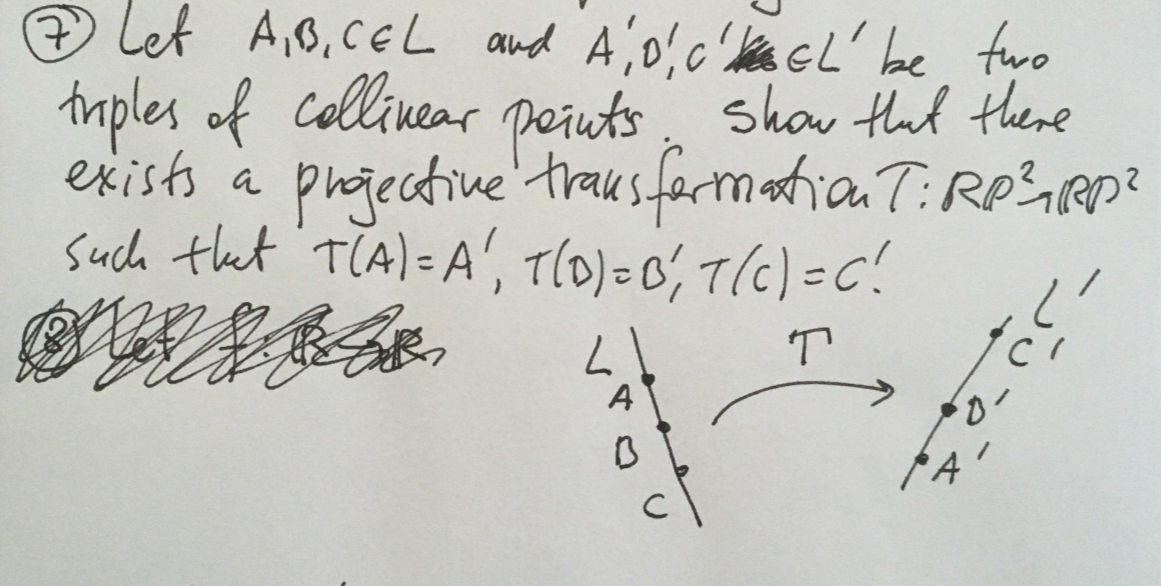 ⑦ Let A,B,C∈L and A',B',C' ∈L' be two
triples of collinear points. Show that there
exists a projective transformation T: RP²→RP²
such that T(A)=A', T(B)=B', T(C)=C'.
L
A
B
C
T
L'
C'
B'
A'